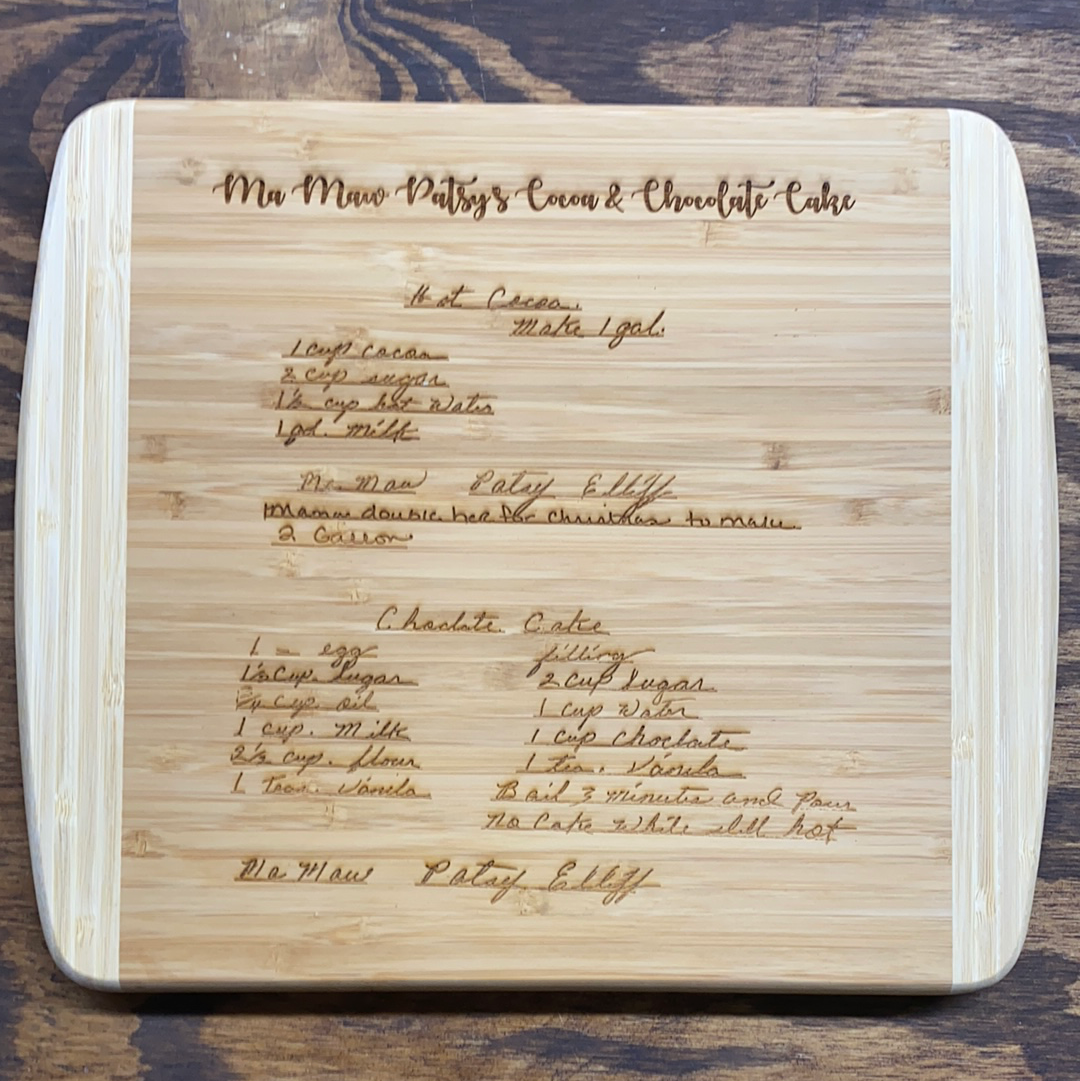 Ma Maw Patsy's Cocoa & Chocolate Cake
Hot Cocoa.
Make 1 gal.
1 cup cocoa
2 cup sugar
1½ cup hot Water
1 gal. Milk
Ma Maw Patsy Elliff
double for Christmas to make
2 Gallon
Choclate Cake
1 - egg
1½ Cup. Sugar
cup oil
1 cup. Milk
2½ cup. flour
1 Teas. Vanila
filling
2 cup Sugar
1 cup Water
1 cup choclate
1 tea. Vanila
Boil 3 minutes and Pour
Cake While still hot
Ma Maw Patsy Elliff